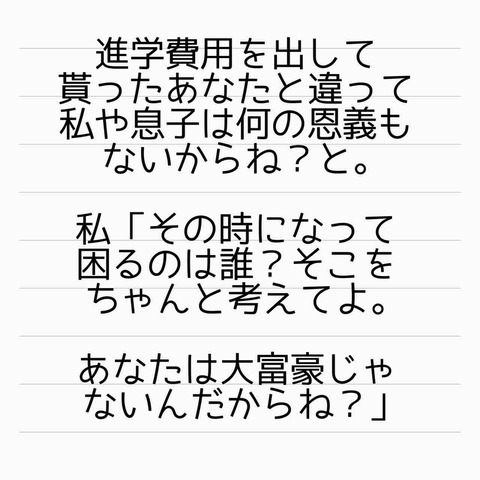 進学費用を出して
貰ったあなたと違って
私や息子は何の恩義も
ないからね？と。
私「その時になって
困るのは誰？そこを
ちゃんと考えてよ。
あなたは大富豪じゃ
ないんだからね？」